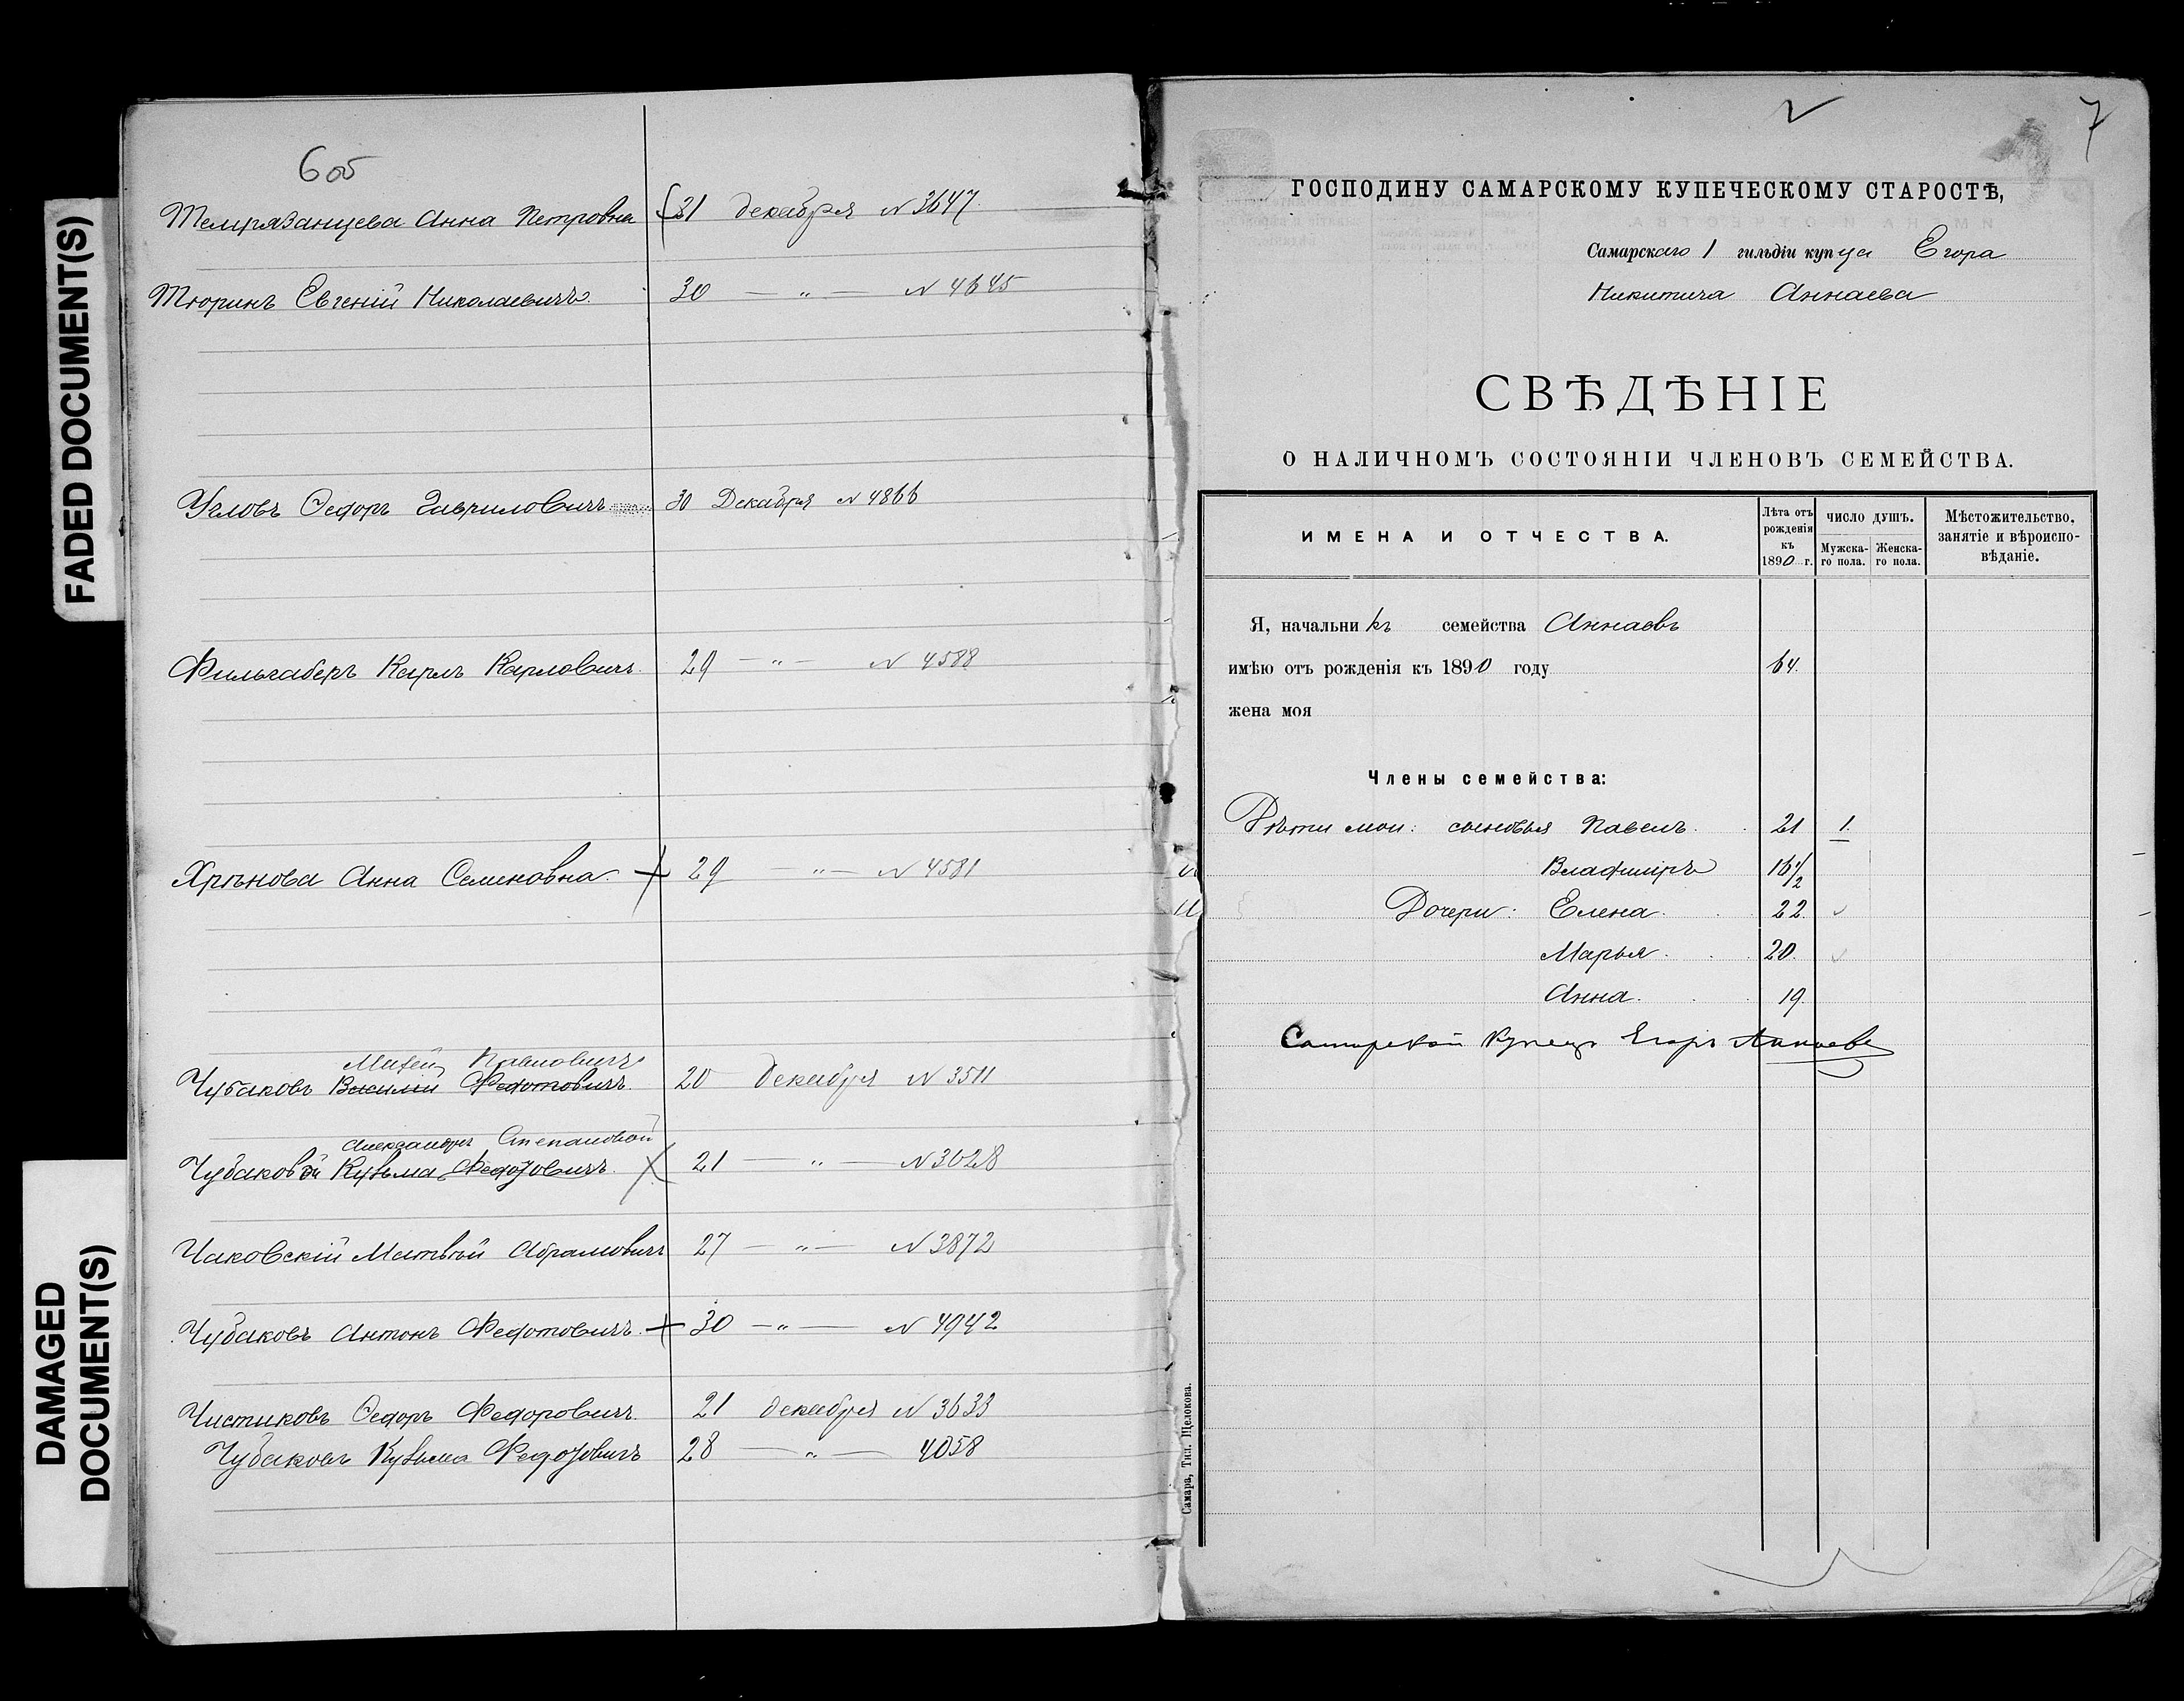 FADED DOCUMENT(S)
DAMAGED DOCUMENT(S)
6 об
Темирязанцева Анна Петровна 21 декабря № 3647
Тюринъ Евгеній Николаевичъ. 30 — „ — № 4645
Угловъ Ѳедоръ Гавриловичъ 30 Декабря № 4866
Фильгаберъ Карлъ Карловичъ. 29 — „ — № 4588
Хрѣнова Анна Семеновна. 29 — „ — № 4581
Павловичъ
Чубаковъ Василій Федотовичъ. 20 декабря № 3511
Александра Степановой
Чубаковой Кузьма Федотовичъ. 21 — „ — № 3628
Чаковскій Матвѣй Абрамовичъ 27 — „ — № 3872
Чубаковъ Антонъ Федотовичъ. 30 — „ — № 4942
Чистиковъ Ѳедоръ Федоровичъ. 21 декабря № 3633
Чубаковъ Кузьма Федотовичъ 28 — „ — 4058
7
ГОСПОДИНУ САМАРСКОМУ КУПЕЧЕСКОМУ СТАРОСТѢ,
Самарскаго 1 гильдіи купца Егора
Никитича Аннаева
СВѢДѢНІЕ
О НАЛИЧНОМЪ СОСТОЯНІИ ЧЛЕНОВЪ СЕМЕЙСТВА.
ИМЕНА И ОТЧЕСТВА.
Лѣта отъ рожденія къ 1890 г.
ЧИСЛО ДУШЪ.
Мужска-го пола.
Женска-го пола.
Мѣстожительство, занятіе и вѣроиспо-вѣданіе.
Я, начальникъ семейства Аннаевъ
имѣю отъ рожденія къ 1890 году 64.
жена моя
Члены семейства:
Дѣти мои: сыновья Павелъ. 21 1.
Владиміръ 16 1/2
Дочери: Елена. 22.
Марья. 20.
Анна. 19.
Самарской Купецъ Егоръ Аннаевъ
Самара, Тип. Щелокова.